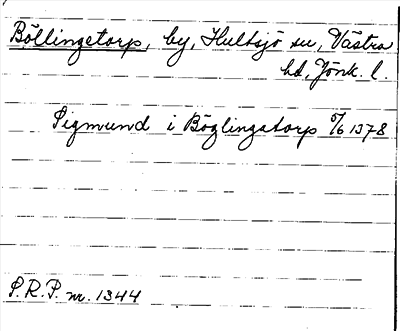 Böllingetorp, by, Hultsjö sn, Västra
hd, Jönk. l.
Sigmund i Böglingatorp 8/6 1378
S.R.P. nr. 1344